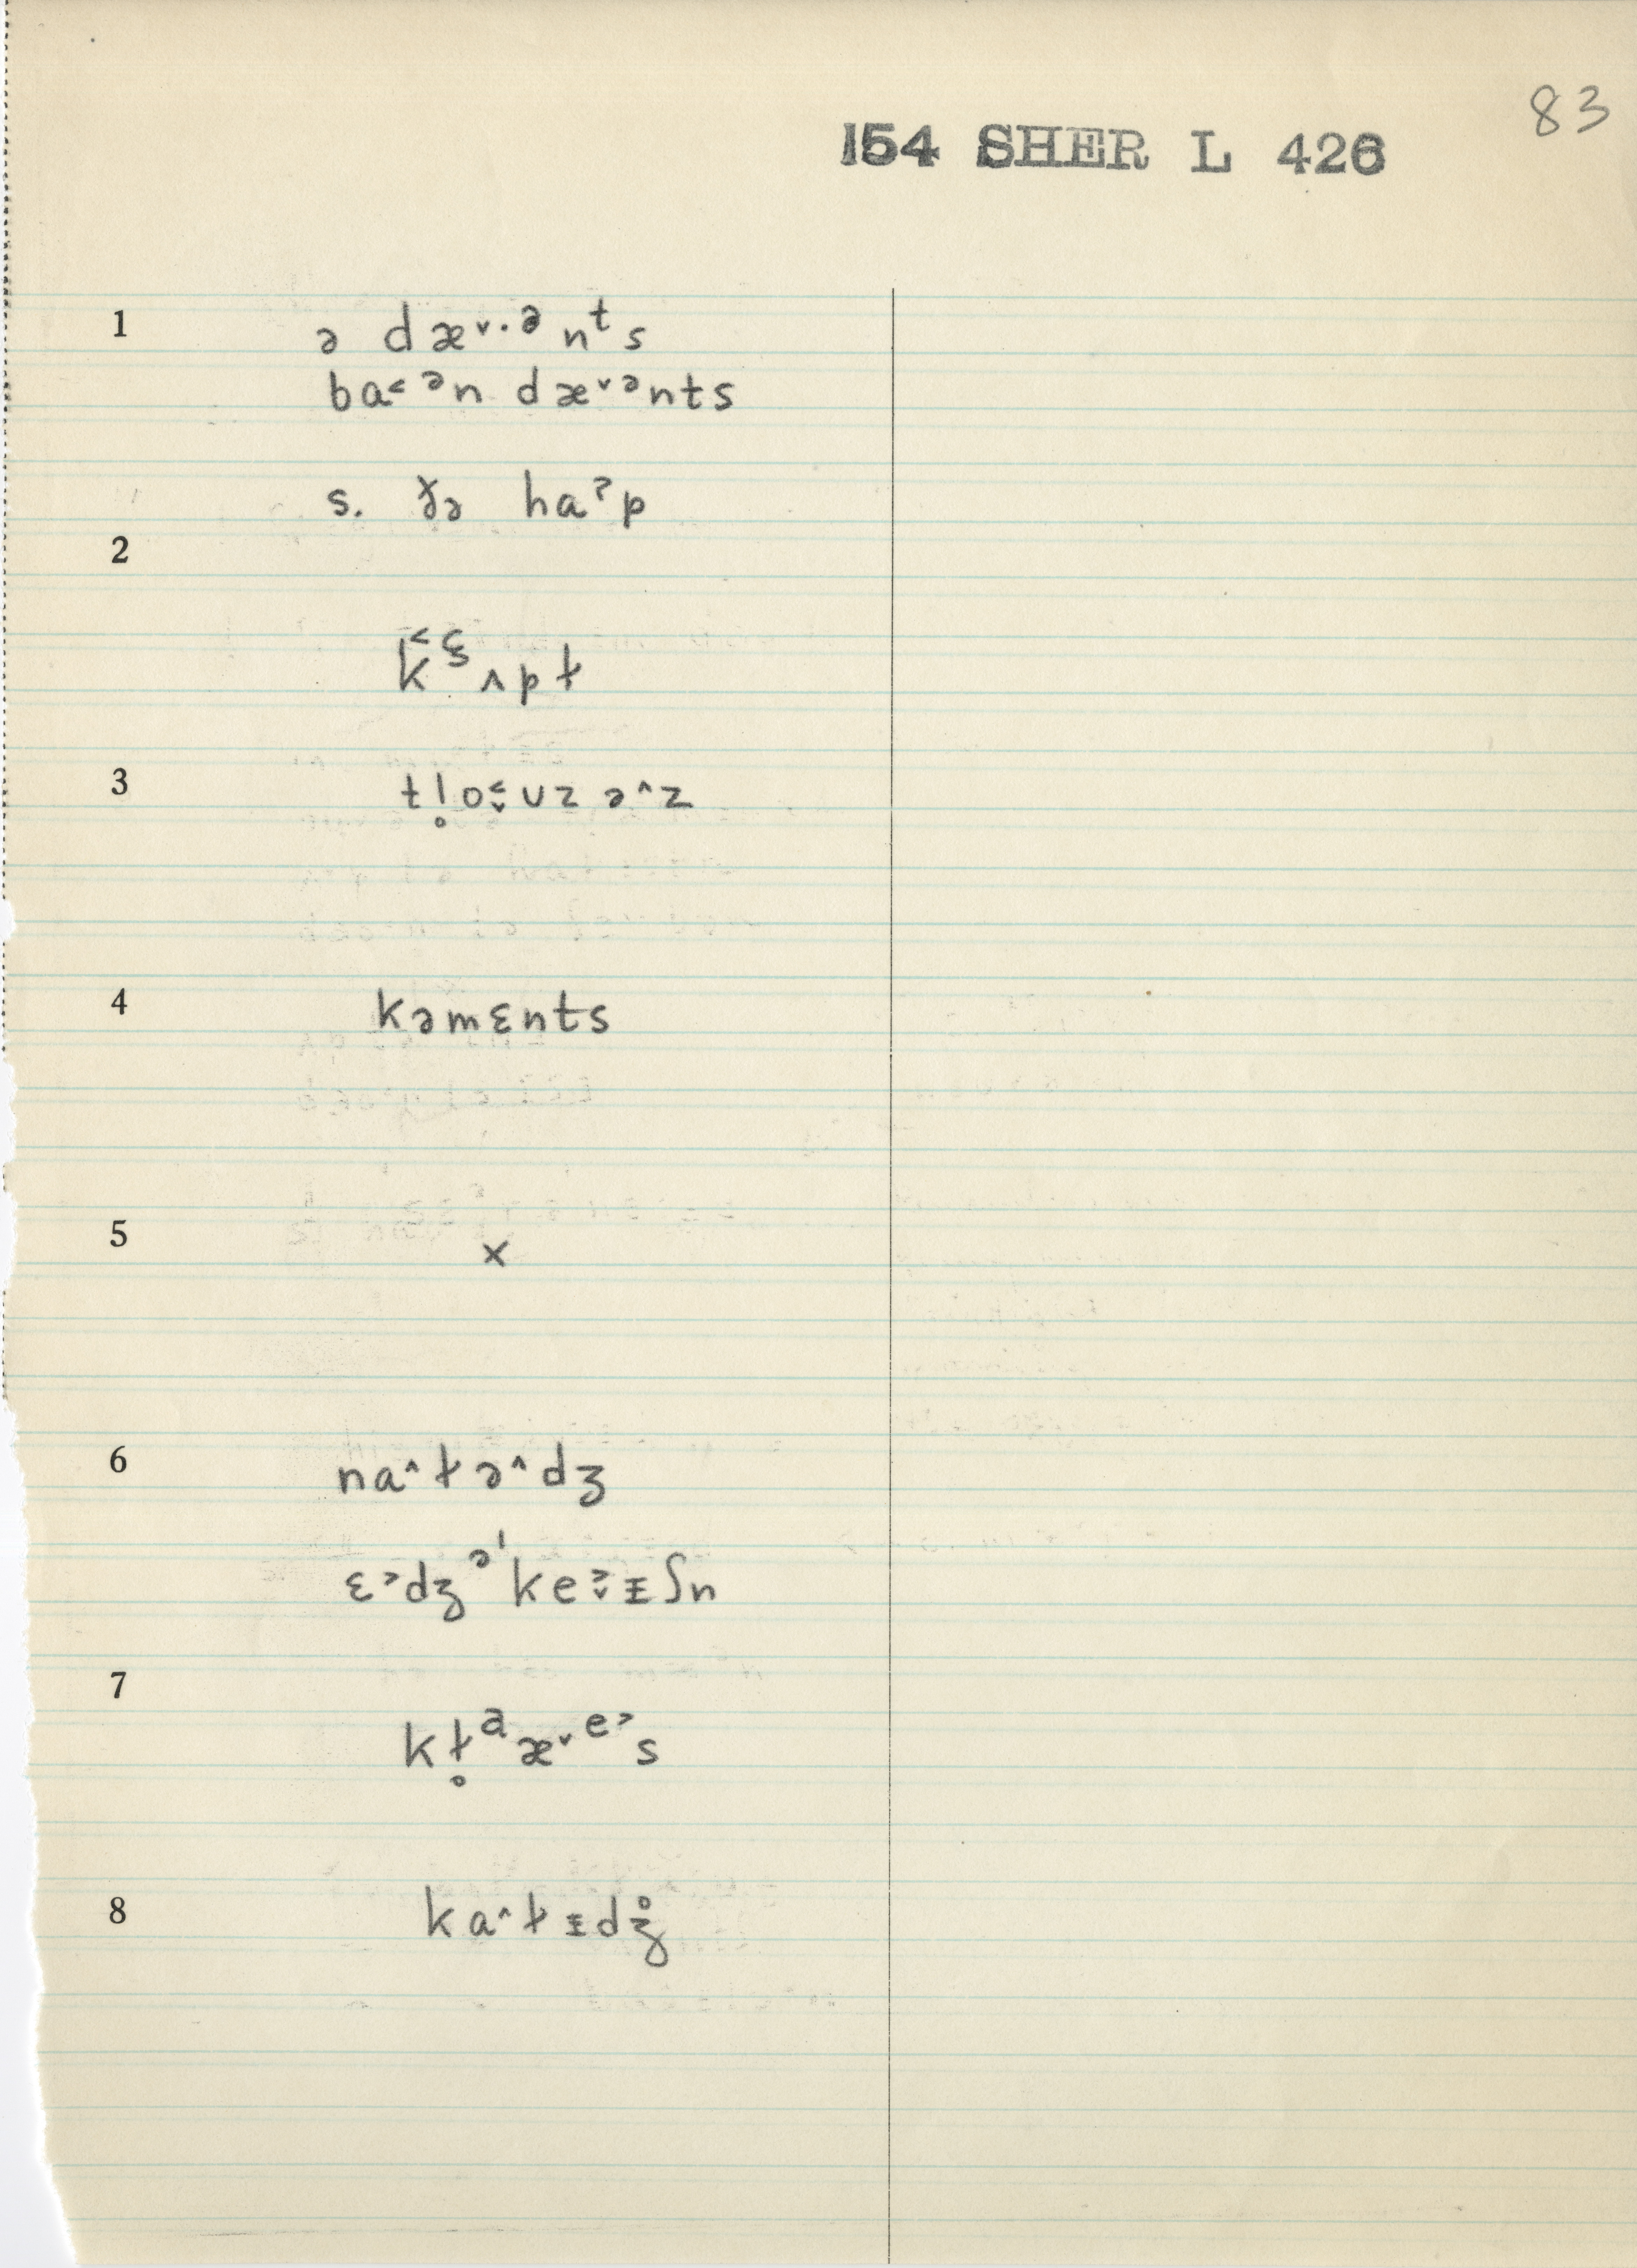 83
154 SHER L 426
1 ə dæ˅·ᵊnᵗs
ba˂ᵊn dæ˅ᵊnts
s. ɤə haˀp
2
k̂˂ᶓʌpɫ
3 tl̥o˂˅ʊzə^z
4 kəmɛnts
5 ×
6 na^ɫə^dʒ
ɛ˃dʒᵊˈke˃˅ɪʃn
7
kɫ̥ᵃæ˅ᵉ˃s
8 ka^ɫɪdʒ̊